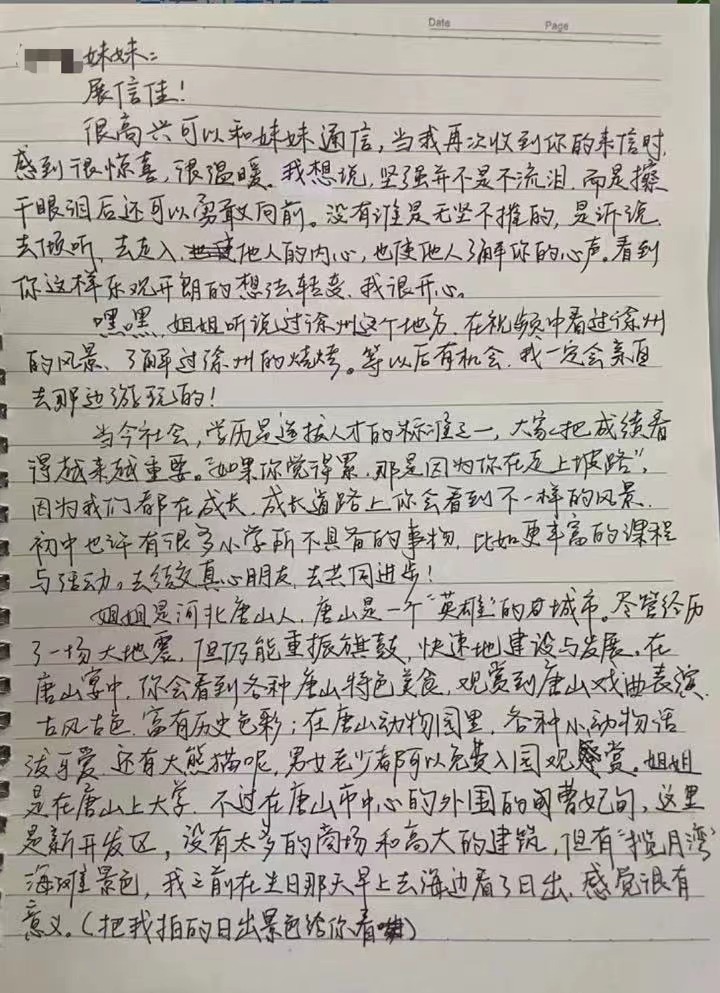 Date Page
妹妹：
展信佳！
很高兴可以和妹妹通信，当我再次收到你的来信时，
感到很惊喜，很温暖。我想说，坚强并不是不流泪，而是擦
干眼泪后还可以勇敢向前。没有谁是无坚不摧的，是诉说，
去倾听，去走入他人的内心，也使他人了解你的心声。看到
你这样乐观开朗的想法转变，我很开心。
嘿嘿，姐姐听说过徐州这个地方，在视频中看过徐州
的风景，了解过徐州的烧烤。等以后有机会，我一定会亲自
去那边游玩的！
当今社会，学历是选拔人才的标准之一，大家把成绩看
得越来越重要。“如果你觉得累，那是因为你在走上坡路”，
因为我们都在成长，成长道路上你会看到不一样的风景，
初中也许有很多小学所不具备的事物，比如更丰富的课程
与活动。去结交真心朋友，去共同进步！
姐姐是河北唐山人，唐山是一个“英雄”的城市。尽管经历
了一场大地震，但仍能重振旗鼓，快速地建设与发展。在
唐山宴中，你会看到各种唐山特色美食，观赏到唐山戏曲表演，
古风古色，富有历史色彩；在唐山动物园里，各种小动物活
泼可爱，还有大熊猫呢，男女老少都可以免费入园观赏。姐姐
是在唐山上大学，不过在唐山市中心的外围的曹妃甸，这里
是新开发区，没有太多的商场和高大的建筑，但有“揽月湾”
海滩景色，我之前在生日那天早上去海边看了日出，感觉很有
意义。（把我拍的日出景色给你看）